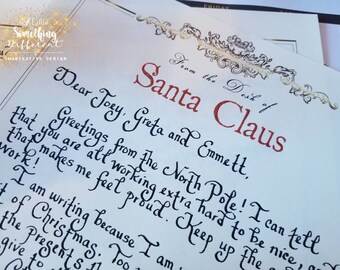 A Little
Something
Different
From the Desk of
Santa Claus
Dear Joey, Greta and Emmett,
Greetings from the North Pole! I can tell
that you are all working extra hard to be nice!
that makes me feel proud. Keep up the
work!
I am writing because I am
of Christmas. Too
the presents
give to